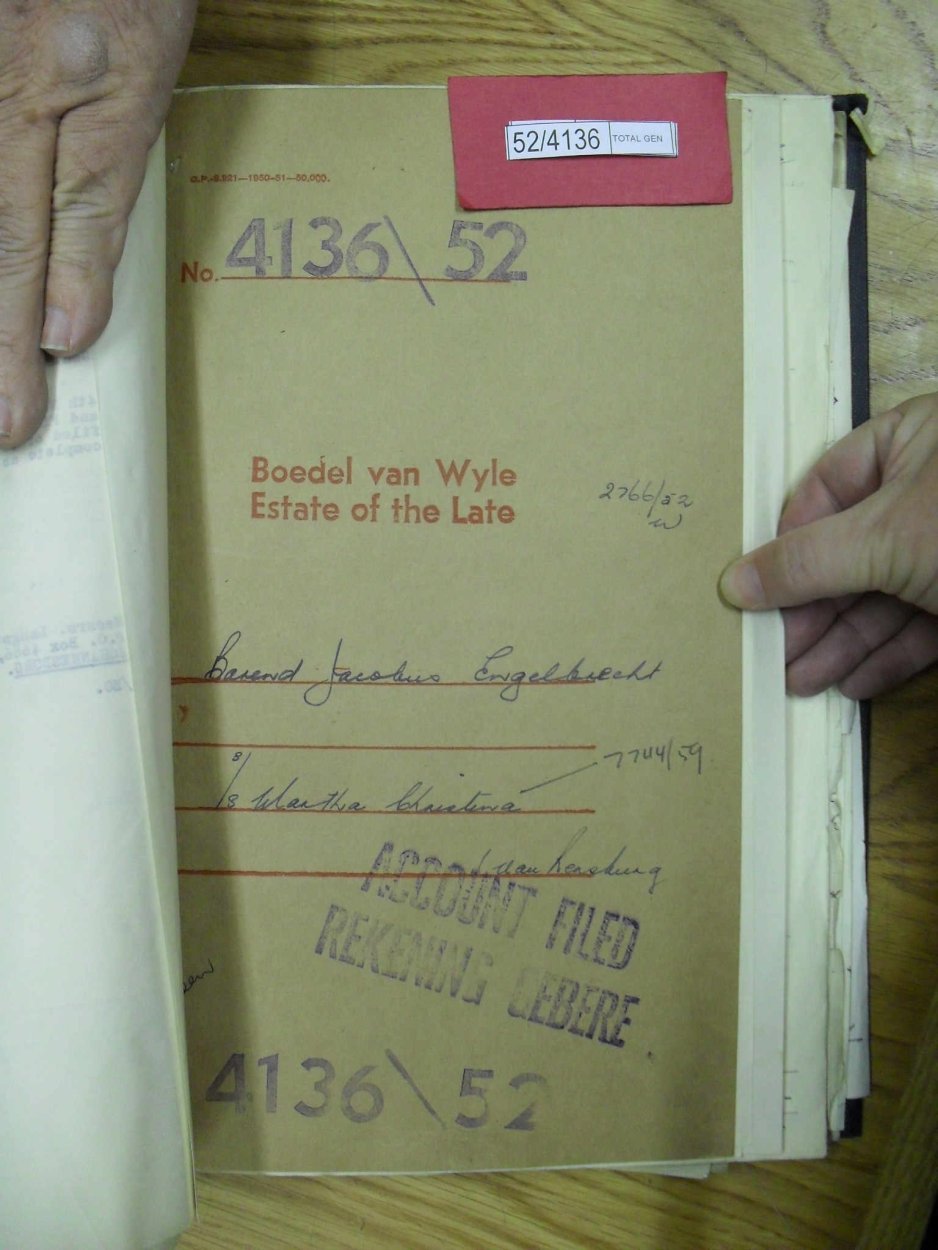 52/4136 TOTAL GEN
G.P.-S.921—1950-51—50,000.
No. 4136\52
Boedel van Wyle
Estate of the Late
2766/52
Barend Jacobus Engelbrecht
7744/59
s/s Martha Christina
J. van Rensburg
ACCOUNT FILED
REKENING GEBERE
4136\52